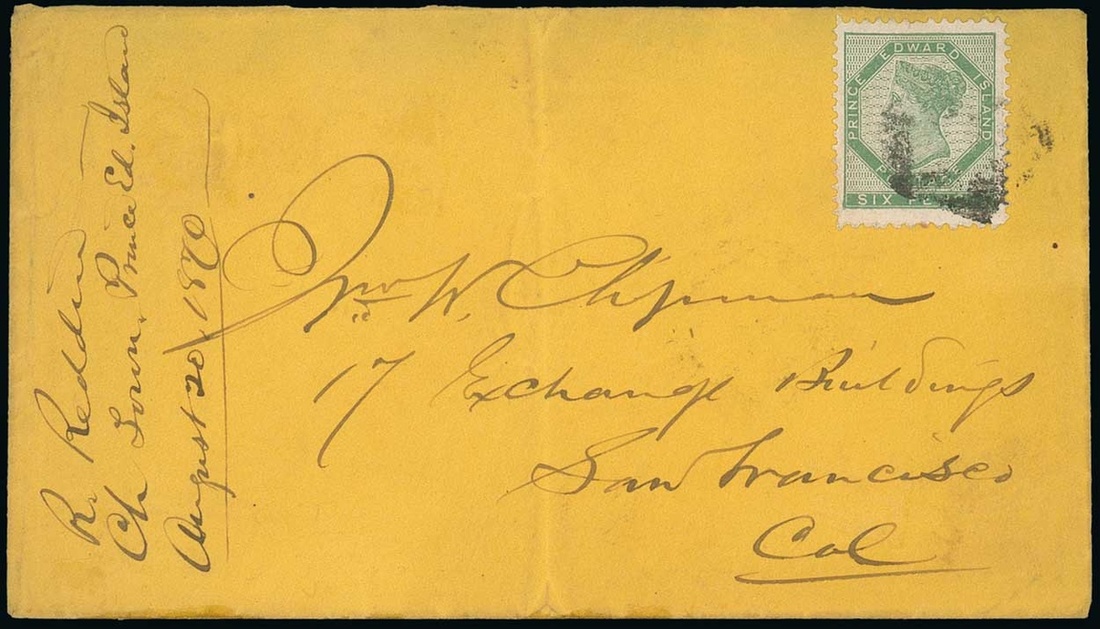 R. Reddin
Ch Town, Prince Ed. Island
August 20, 1870
PRINCE EDWARD ISLAND
SIX
Jno W. Chipman
17 Exchange Buildings
San Francisco
Cal